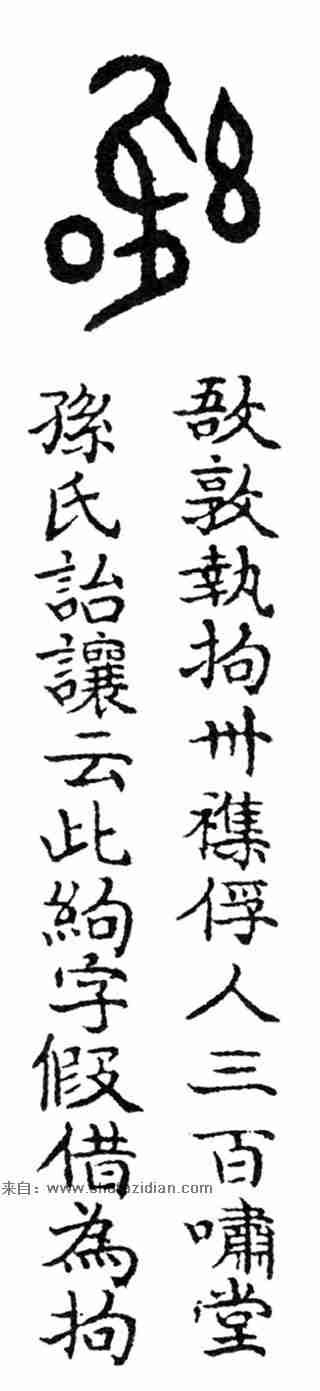 敔敦執拘卅襍俘人三百嘯堂
孫氏詒讓云此絇字假借為拘
来自：www.shufazidian.com